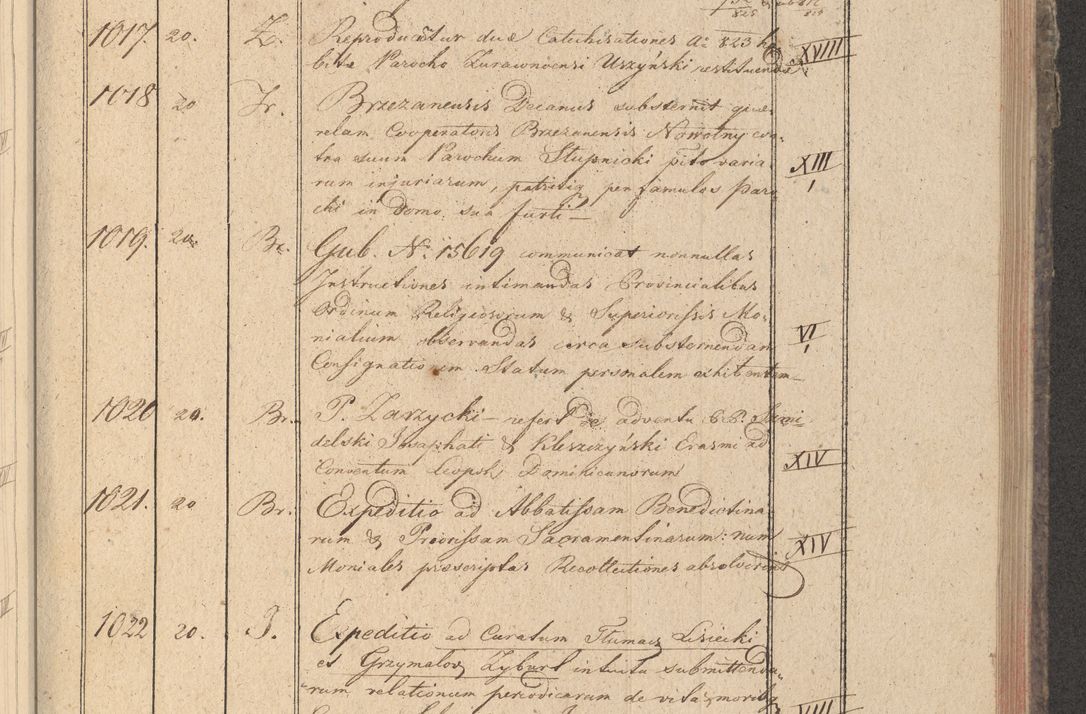 1017. 20. Z. Reproducuntur duæ Catechisationes Aº 823 ha
bitæ Parocho Zurawnoensi Uszyński restituendæ XVIII
1018 20 Jr. Brzezanensis Decanus substernit que
relam Cooperatoris Brzezanensis Nowotny con
tra suum Parochum Stupnicki pto varia
rum injuriarum, patratiq per famulos Paro XIII
chi in Domo sua furti — 1
1019. 20. Br. Gub. Nº 15619 communicat nonnullas
Instructiones intimandas Provincialibus
Ordinum Religiosorum & Superiorissis Mo,
nialium observandas circa substernendam VI
Consignationem Statum personalem exhibentem — 1
1020 20. Br. P. Zarzycki — refert de adventu P.P.
delski Jozaphati & Kleszczyński Erasmi ad
Conventum Leopol, Dominicanorum XIV
1021. 20 Br. Expeditio ad Abbatissam Benedictina
rum & Priorissam Sacramentinarum: num XIV
Moniales præscriptas Recollectiones absolverint
1022 20. J. Expeditio ad Curatum Tlumac, Lisiecki
et Grzymalov, Zyburt intuitu submittenda
rum relationum periodicarum de vita, moribq
XVIII